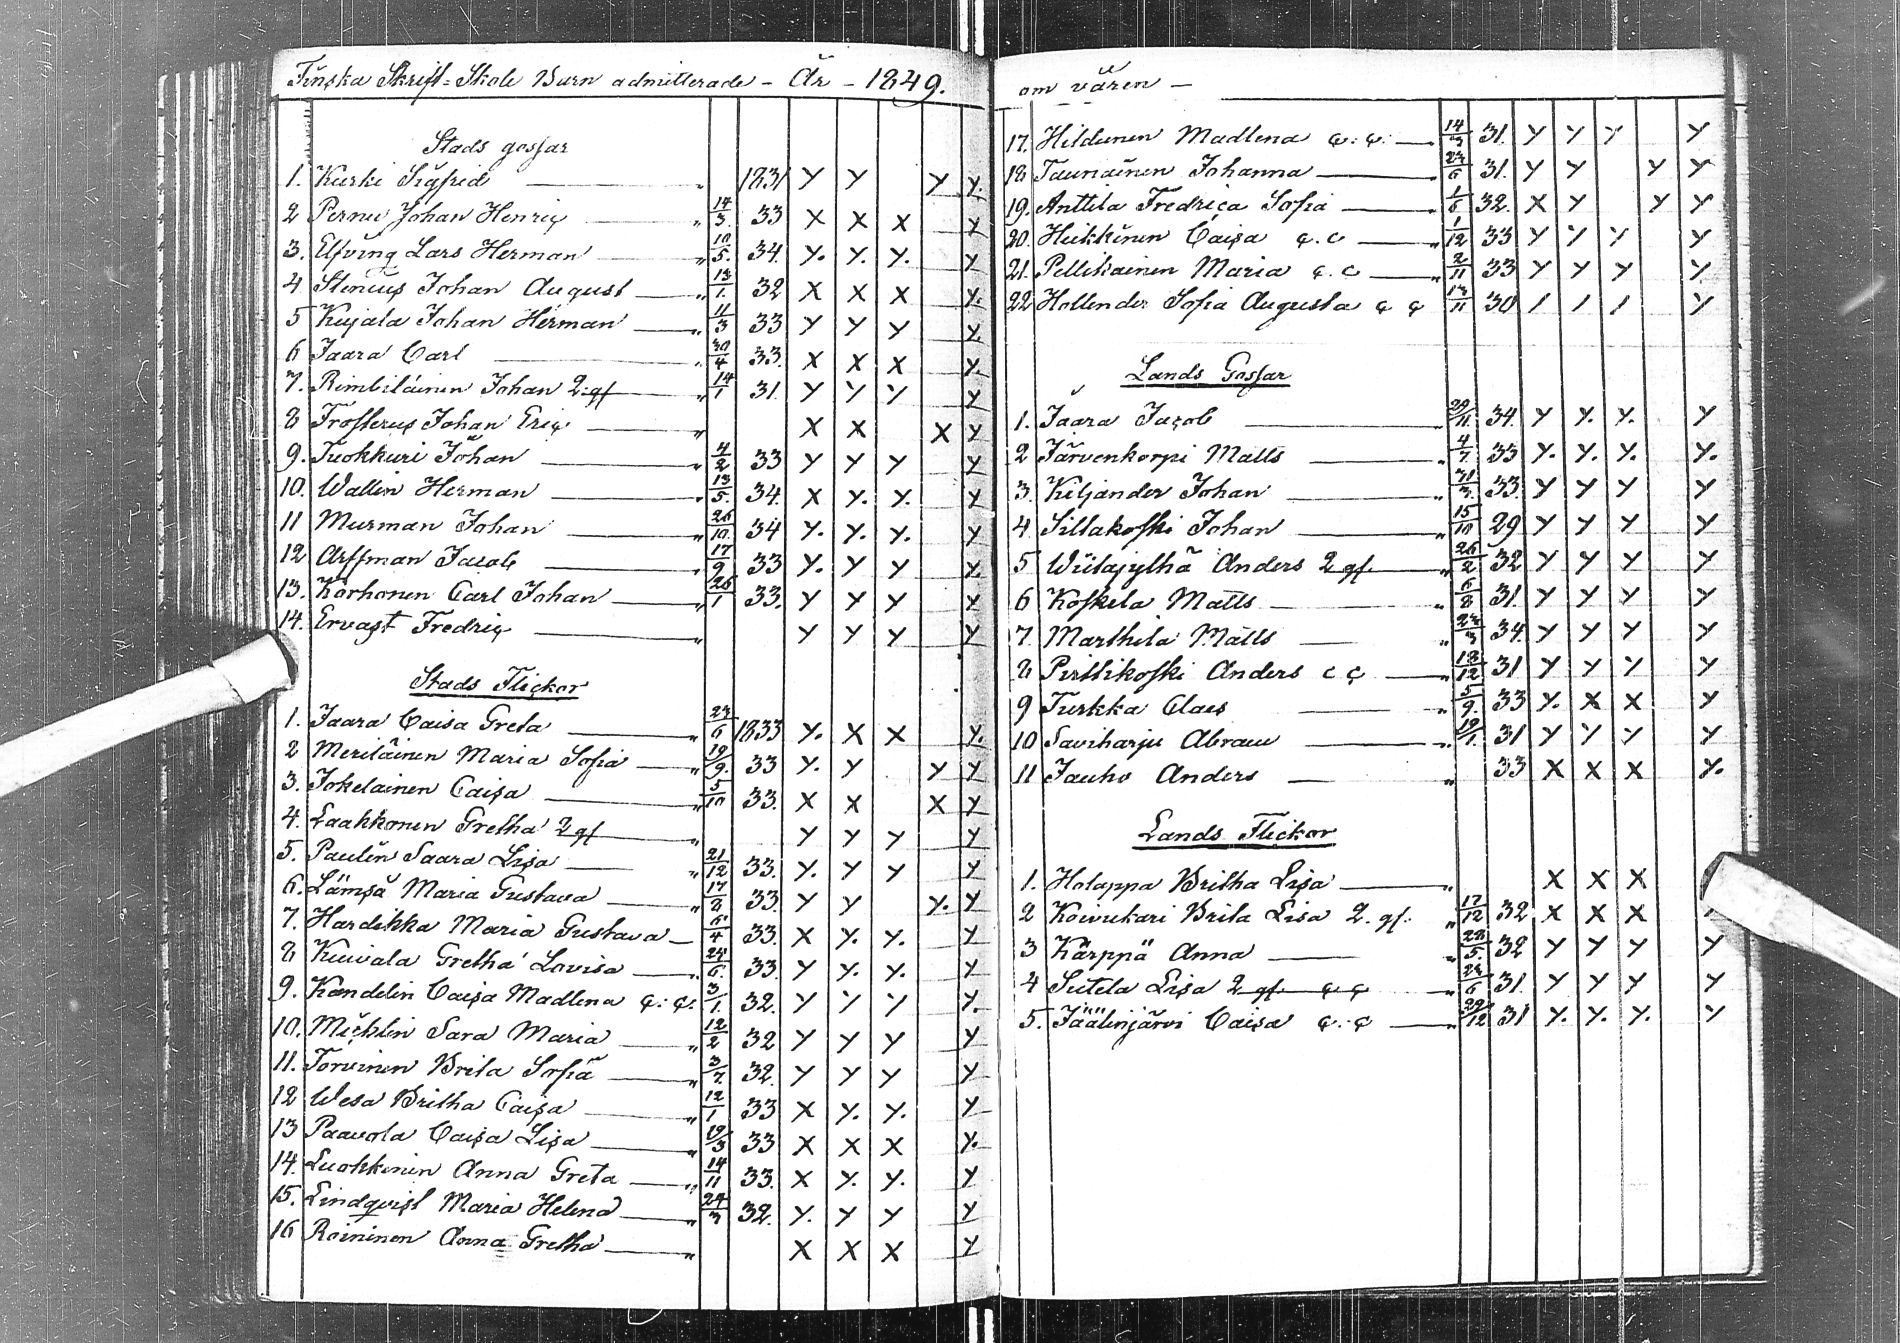 Finska Skrift-Skole Barn admitterade - År - 1849.
Stads gossar
1. Kurki Sigfrid " 1831 Y Y Y Y.
2 Pernu Johan Henric " 14/3. 33 X X X Y
3. Elfving Lars Herman " 10/5. 34. Y. Y. Y. Y
4 Stenius Johan August " 13/1. 32 X X X Y.
5 Kujala Johan Herman " 11/3 33 Y Y Y Y.
6 Jaara Carl " 30/4 33. X X X Y.
7. Rimbiläinen Johan 2 gf " 14/1 31. Y Y Y Y
8 Frosterus Johan Eric " X X X Y
9. Tuokkuri Johan " 4/2 33 Y Y Y Y
10. Wallin Herman " 13/5. 34. X Y. Y. Y
11 Murman Johan " 26/10. 34 Y. Y. Y. Y
12 Arffman Jacob " 17/9 33 Y. Y Y Y.
13. Korhonen Carl Johan " 26/1 33. Y Y Y Y
14. Ervast Fredric " Y Y Y Y
Stads Flickor
1. Jaara Caisa Greta " 23/6 1833 Y. X X Y.
2 Meriläinen Maria Sofia " 19/9. 33 Y. Y Y Y
3. Jokelainen Caisa " 5/10 33. X X X Y
4. Laakkonen Gretha 2 gf " Y Y Y Y
5. Paulin Saara Lisa " 21/12 33. Y. Y Y Y
6. Lämsä Maria Gustava " 17/8 33. Y Y Y. Y
7. Hardikka Maria Gustava 6/4 33. X Y. Y. Y
8 Kuivala Gretha Lovisa " 33. Y Y. Y. Y
9. Kandelin Caisa Madlena c. c. 3/1. 32. Y Y Y Y.
10. Michlin Sara Maria " 12/2 32 Y Y Y Y
11. Torvinen Brita Sofia " 3/7. 32. Y Y Y Y
12 Wesa Britha Caisa " 12/1 33 X Y. Y. Y
13 Paavola Caisa Lisa " 19/3 33 X X X Y.
14. Luokkinen Anna Greta " 14/11 33. X Y. Y. Y
15. Lindqvist Maria Helena " 24/3 32. Y. Y Y Y
16 Roininen Anna Gretha " X X X Y
om våren -
17. Hildunen Madlena c. c. 14/3 31. Y Y Y Y
18 Tauriainen Johanna " 23/6 31. Y Y Y Y
19. Anttila Fredrica Sofia " 1/6 32. X Y Y Y
20. Heikkinen Caisa c. c " 1/12 33 Y Y Y Y
21. Pellikainen Maria c. c " 2/11 33 Y Y Y Y
22 Hollender Sofia Augusta c c 13/11 30 / / / Y
Lands Gossar
1. Jaara Jacob " 29/11. 34. Y Y. Y. Y
2 Järvenkorpi Matts " 4/7. 33 Y. Y. Y. Y.
3. Keljander Johan " 31/3. 33. Y Y Y Y
4 Sillakoski Johan " 15/10 29 Y Y Y Y
5 Wiitajylhä Anders 2 gf. " 26/2 32 Y Y Y Y
6 Koskela Matts " 6/8 31. Y Y Y Y
7. Marthila Matts " 23/3 34. Y Y Y Y
8 Pirttikoski Anders c c " 18/12 31 Y Y Y Y
9 Turkka Claes " 5/9. 33 Y. X X Y
10 Saviharju Abram " 19/1. 31 Y Y Y Y
11 Jauho Anders " 33 X X X Y.
Lands Flickor
1. Holappa Britha Lisa " X X X
2 Koivukari Brita Lisa 2. gf. " 17/12 32 X X X
3 Kärppä Anna " 28/5. 32 Y Y Y Y
4 Sutela Lisa 2 gf c c " 24/6 31. Y Y Y Y
5. Jäälinjärvi Caisa c. c " 29/12 31 Y. Y. Y. Y